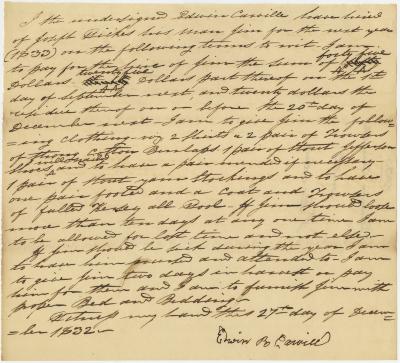 I the undersigned Edwin Carvill have hired
of Joseph Dickes his man Jim for the next year
(1833) on the following terms to wit I am
to pay for the hire of Jim the sum of forty five
Dollars twenty five Dollars part thereof on the 1st
day of September next, and twenty dollars the
residue thereof on or before the 25th day of
December next I am to give Jim the follow-
=ing clothing viz 2 Shirts & 2 pair of Trowsers
of strong Cotton Burlaps 1 pair of stout
shoes and to have a pair mended if necessary
1 pair of stout yarn Stockings and to have
one pair footed and a Coat and Trowsers
of fulled Kersey all Wool - If Jim should loose
more than ten days at any one time I am
to be allowed for lost time and not else
If Jim should be sick during the year I am
to have him nursed and attended to I am
to give Jim two days in harvest or pay
him for them and I am to furnish Jim with
proper Bed and Bedding
Witness my hand this 27th day of Decem-
=ber 1832
Edwin R Carvill